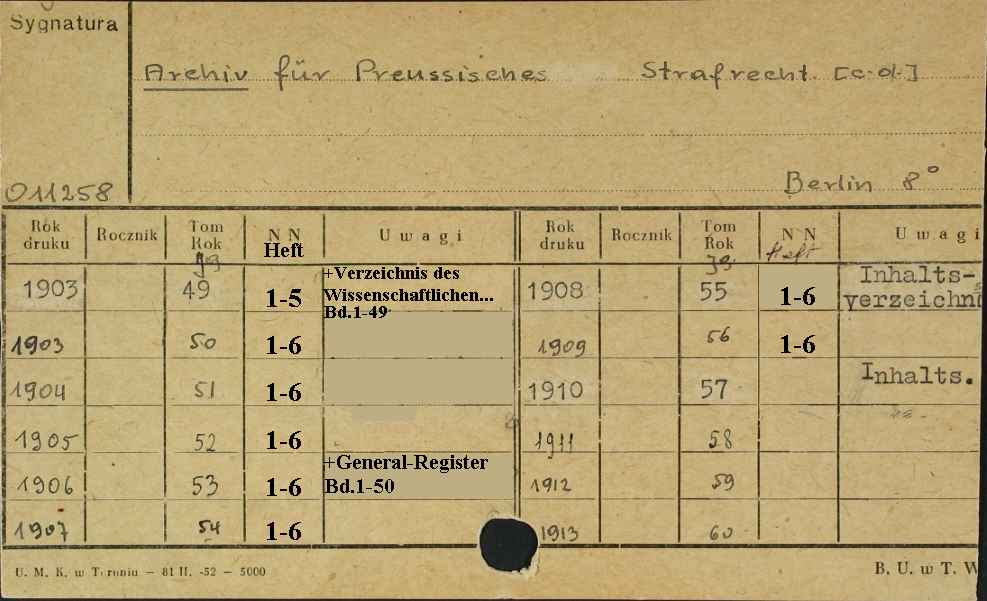 Sygnatura
Archiv für Preussisches Strafrecht [c.d.]
011258
Berlin 8°
Rok druku Rocznik Tom Rok Jg N N Heft Uwagi Rok druku Rocznik Tom Rok Jg N N Heft Uwagi
1903 49 1-5 +Verzeichnis des Wissenschaftlichen... Bd.1-49 1908 55 1-6 Inhalts-
verzeichn
1903 50 1-6 1909 56 1-6
1904 51 1-6 1910 57 Inhalts.
1905 52 1-6 1911 58
1906 53 1-6 +General-Register Bd.1-50 1912 59
1907 54 1-6 1913 60
U. M. K. w Toruniu – 81 II. -52 – 5000
B. U. w T. W